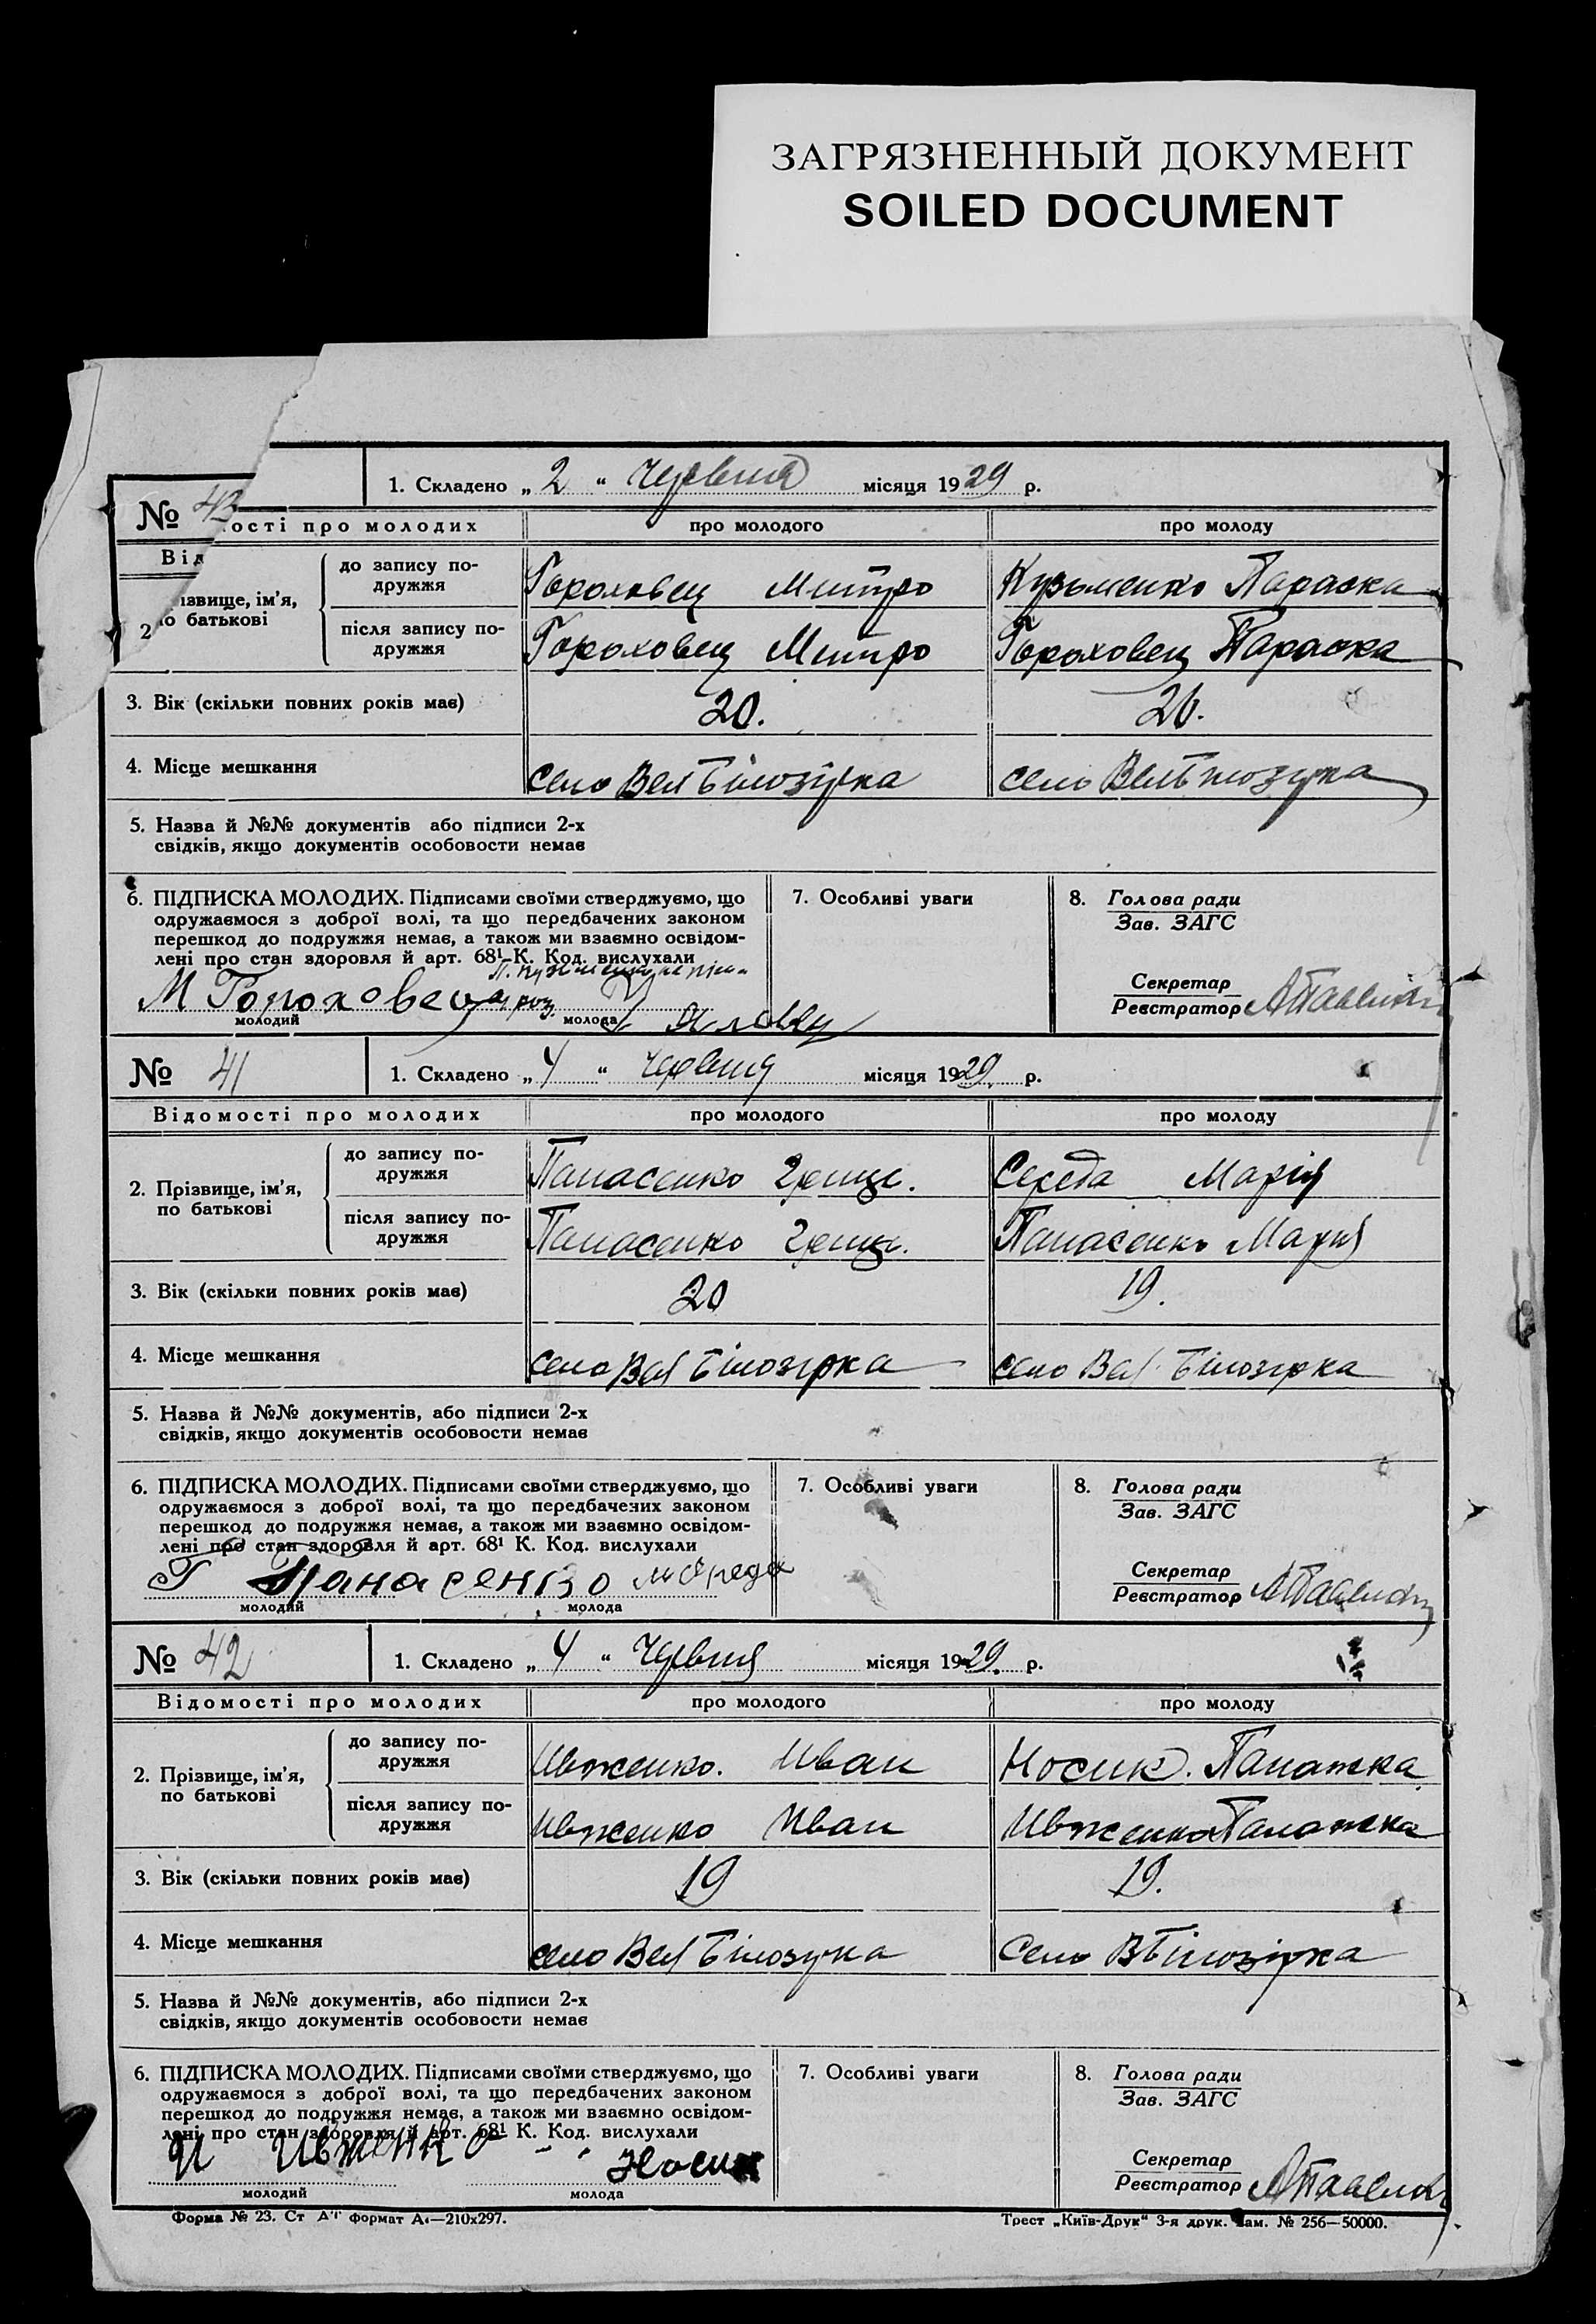 ЗАГРЯЗНЕННЫЙ ДОКУМЕНТ
SOILED DOCUMENT
1. Складено „ 2 “ Червня місяця 1929 р.
№ 43
ості про молодих про молодого про молоду
Від
2
різвище, ім’я,
по батькові
до запису по-
дружжя
Гороховец Митро Кузьменко Параска
після запису по-
дружжя
Гороховец Митро Гороховец Параска
3. Вік (скільки повних років має) 20. 26.
4. Місце мешкання село Вел Білозірка село Вел Білозірка
5. Назва й №№ документів або підписи 2-х
свідків, якщо документів особовости немає
6. ПІДПИСКА МОЛОДИХ. Підписами своїми стверджуємо, що
одружаємося з доброї волі, та що передбачених законом
перешкод до подружжя немає, а також ми взаємно освідом-
лені про стан здоровля й арт. 68¹ К. Код. вислухали
М Гороховец
молодий молода
7. Особливі уваги
8. Голова ради
Зав. ЗАГС
Секретар
Реєстратор
№ 41 1. Складено „ 4 “ Червня місяця 1929. р.
Відомості про молодих про молодого про молоду
2. Прізвище, ім’я,
по батькові
до запису по-
дружжя
Панасенко Гриць. Середа Марія
після запису по-
дружжя
Панасенко Гриць. Панасенко Марія
3. Вік (скільки повних років має) 20 19.
4. Місце мешкання село Вел Білозірка село Вел Білозірка
5. Назва й №№ документів, або підписи 2-х
свідків, якщо документів особовости немає
6. ПІДПИСКА МОЛОДИХ. Підписами своїми стверджуємо, що
одружаємося з доброї волі, та що передбачених законом
перешкод до подружжя немає, а також ми взаємно освідом-
лені про стан здоровля й арт. 68¹ К. Код. вислухали
Г Панасенко М Середа
молодий молода
7. Особливі уваги
8. Голова ради
Зав. ЗАГС
Секретар
Реєстратор
№ 42 1. Складено „ 4 “ Червня місяця 1929. р.
Відомості про молодих про молодого про молоду
2. Прізвище, ім’я,
по батькові
до запису по-
дружжя
Ивженко. Иван Носик. Панажка
після запису по-
дружжя
Ивженко Иван Ивженко Панажка
3. Вік (скільки повних років має) 19 19.
4. Місце мешкання село Вел Білозірка Село В Білозірка
5. Назва й №№ документів, або підписи 2-х
свідків, якщо документів особовости немає
6. ПІДПИСКА МОЛОДИХ. Підписами своїми стверджуємо, що
одружаємося з доброї волі, та що передбачених законом
перешкод до подружжя немає, а також ми взаємно освідом-
лені про стан здоровля й арт. 68¹ К. Код. вислухали
И Ивженко Носик
молодий молода
7. Особливі уваги
8. Голова ради
Зав. ЗАГС
Секретар
Реєстратор
Форма № 23. Ст формат А₄—210х297. Трест „Київ-Друк“ 3-я друк. Зам. № 256—50000.